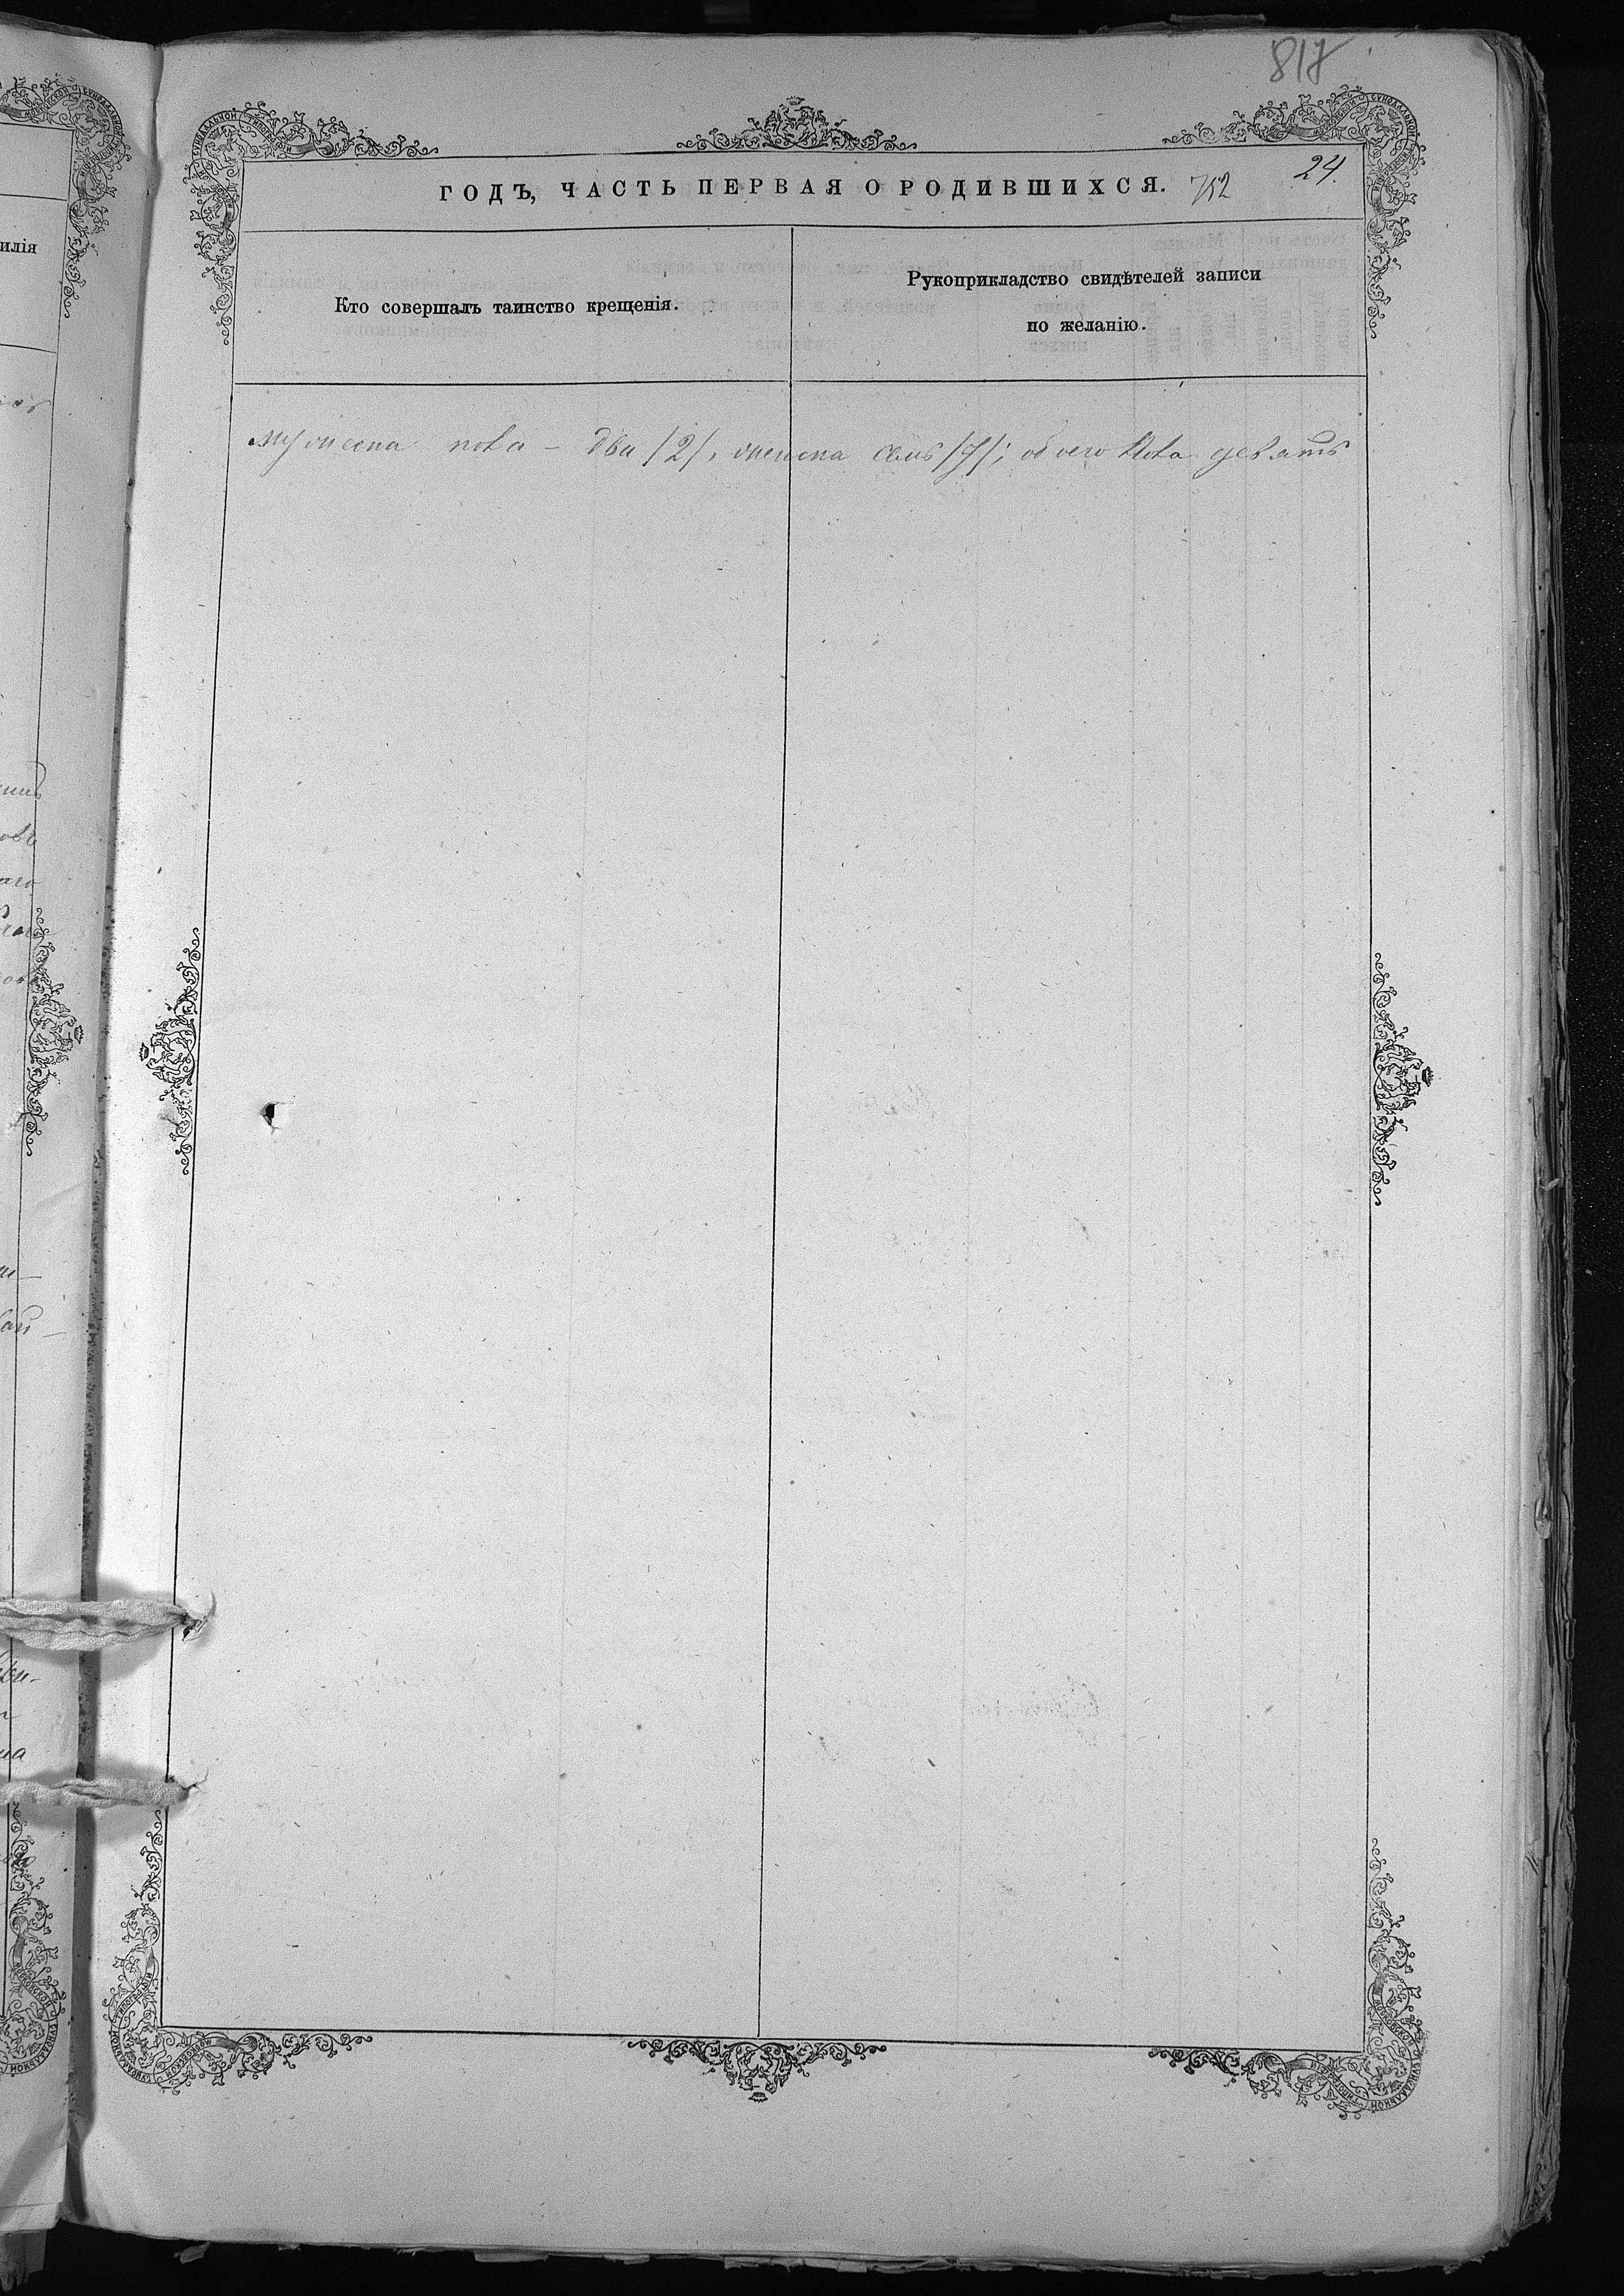 817
ГОДЪ, ЧАСТЬ ПЕРВАЯ О РОДИВШИХСЯ. 752 24.
Кто совершалъ таинство крещенія.
Рукоприкладство свидѣтелей записи
по желанію.
мужеска пола – два /2/, женска семь /7/; обоего пола девять
илія